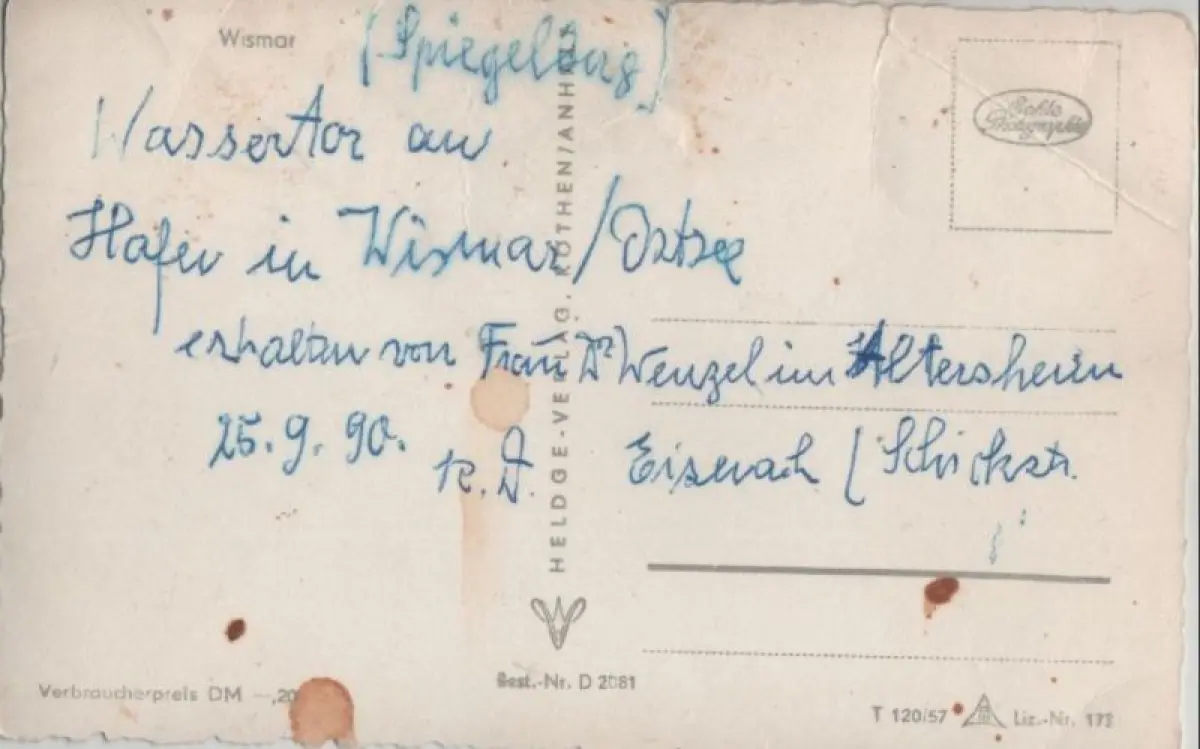 Wismar
(Spiegelung)
Wassertor am
Hafen in Wismar/Ostsee
erhalten von Frau Dr Wenzel im Altersheim
25.9.90.
R.D.
Eisenach (Schickstr.
HELDGE-VERLAG, KÖTHEN/ANHALT
Echte
Photographie
Verbraucherpreis DM —,20
Best.-Nr. D 2081
T 120/57
Liz.-Nr.